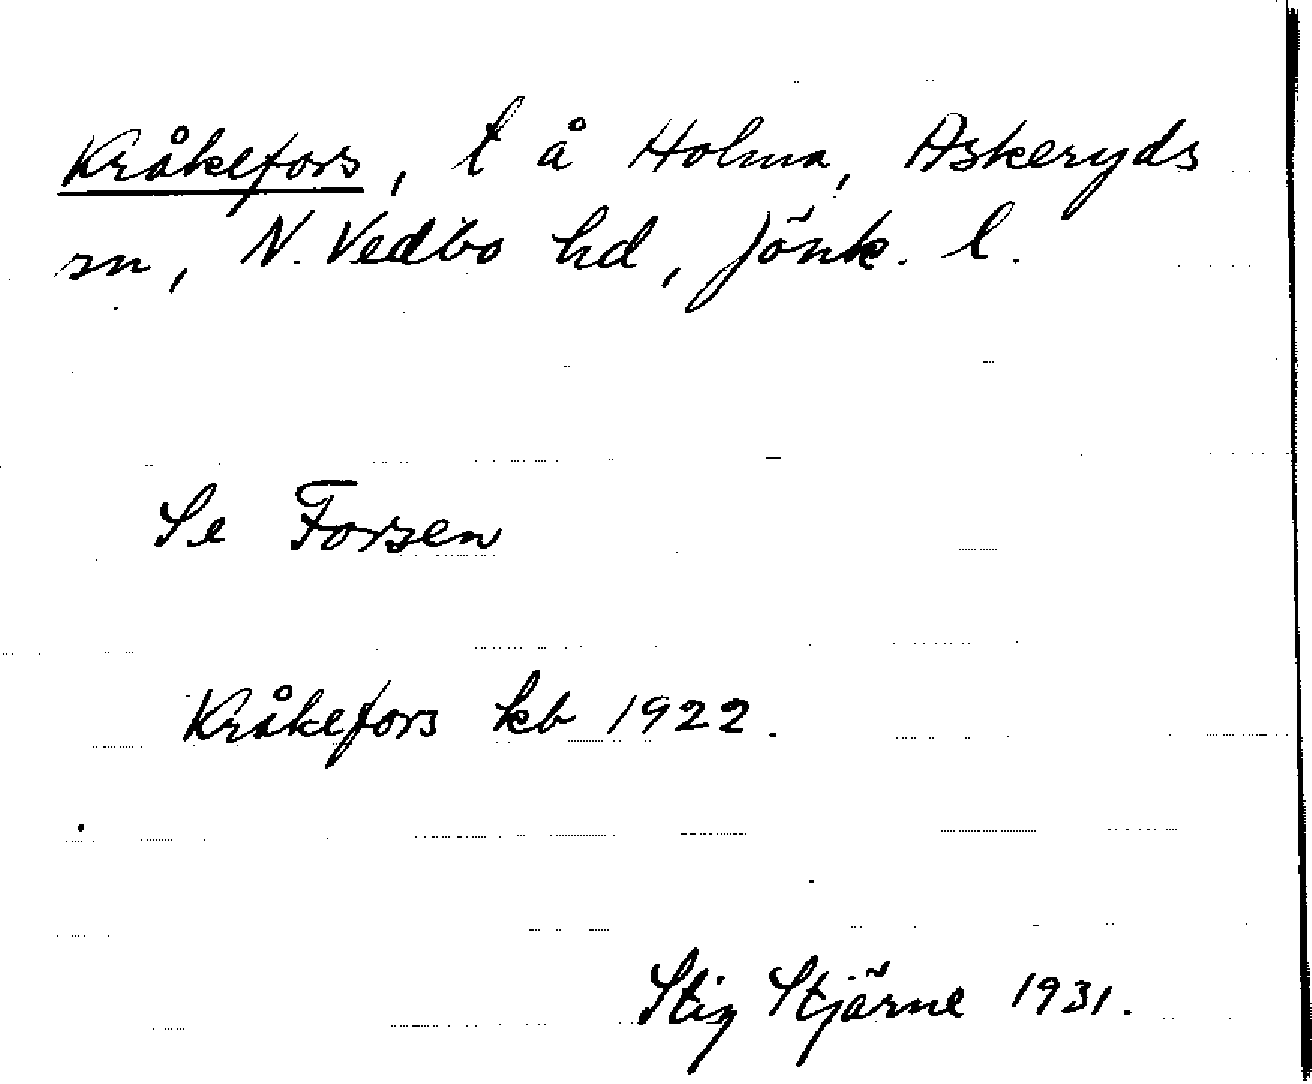 Kråkefors, t å Holma, Askeryds
sn, N. Vedbo hd, Jönk. l.
Se Forsen
Kråkefors kb 1922.
Stig Stjärne 1931.